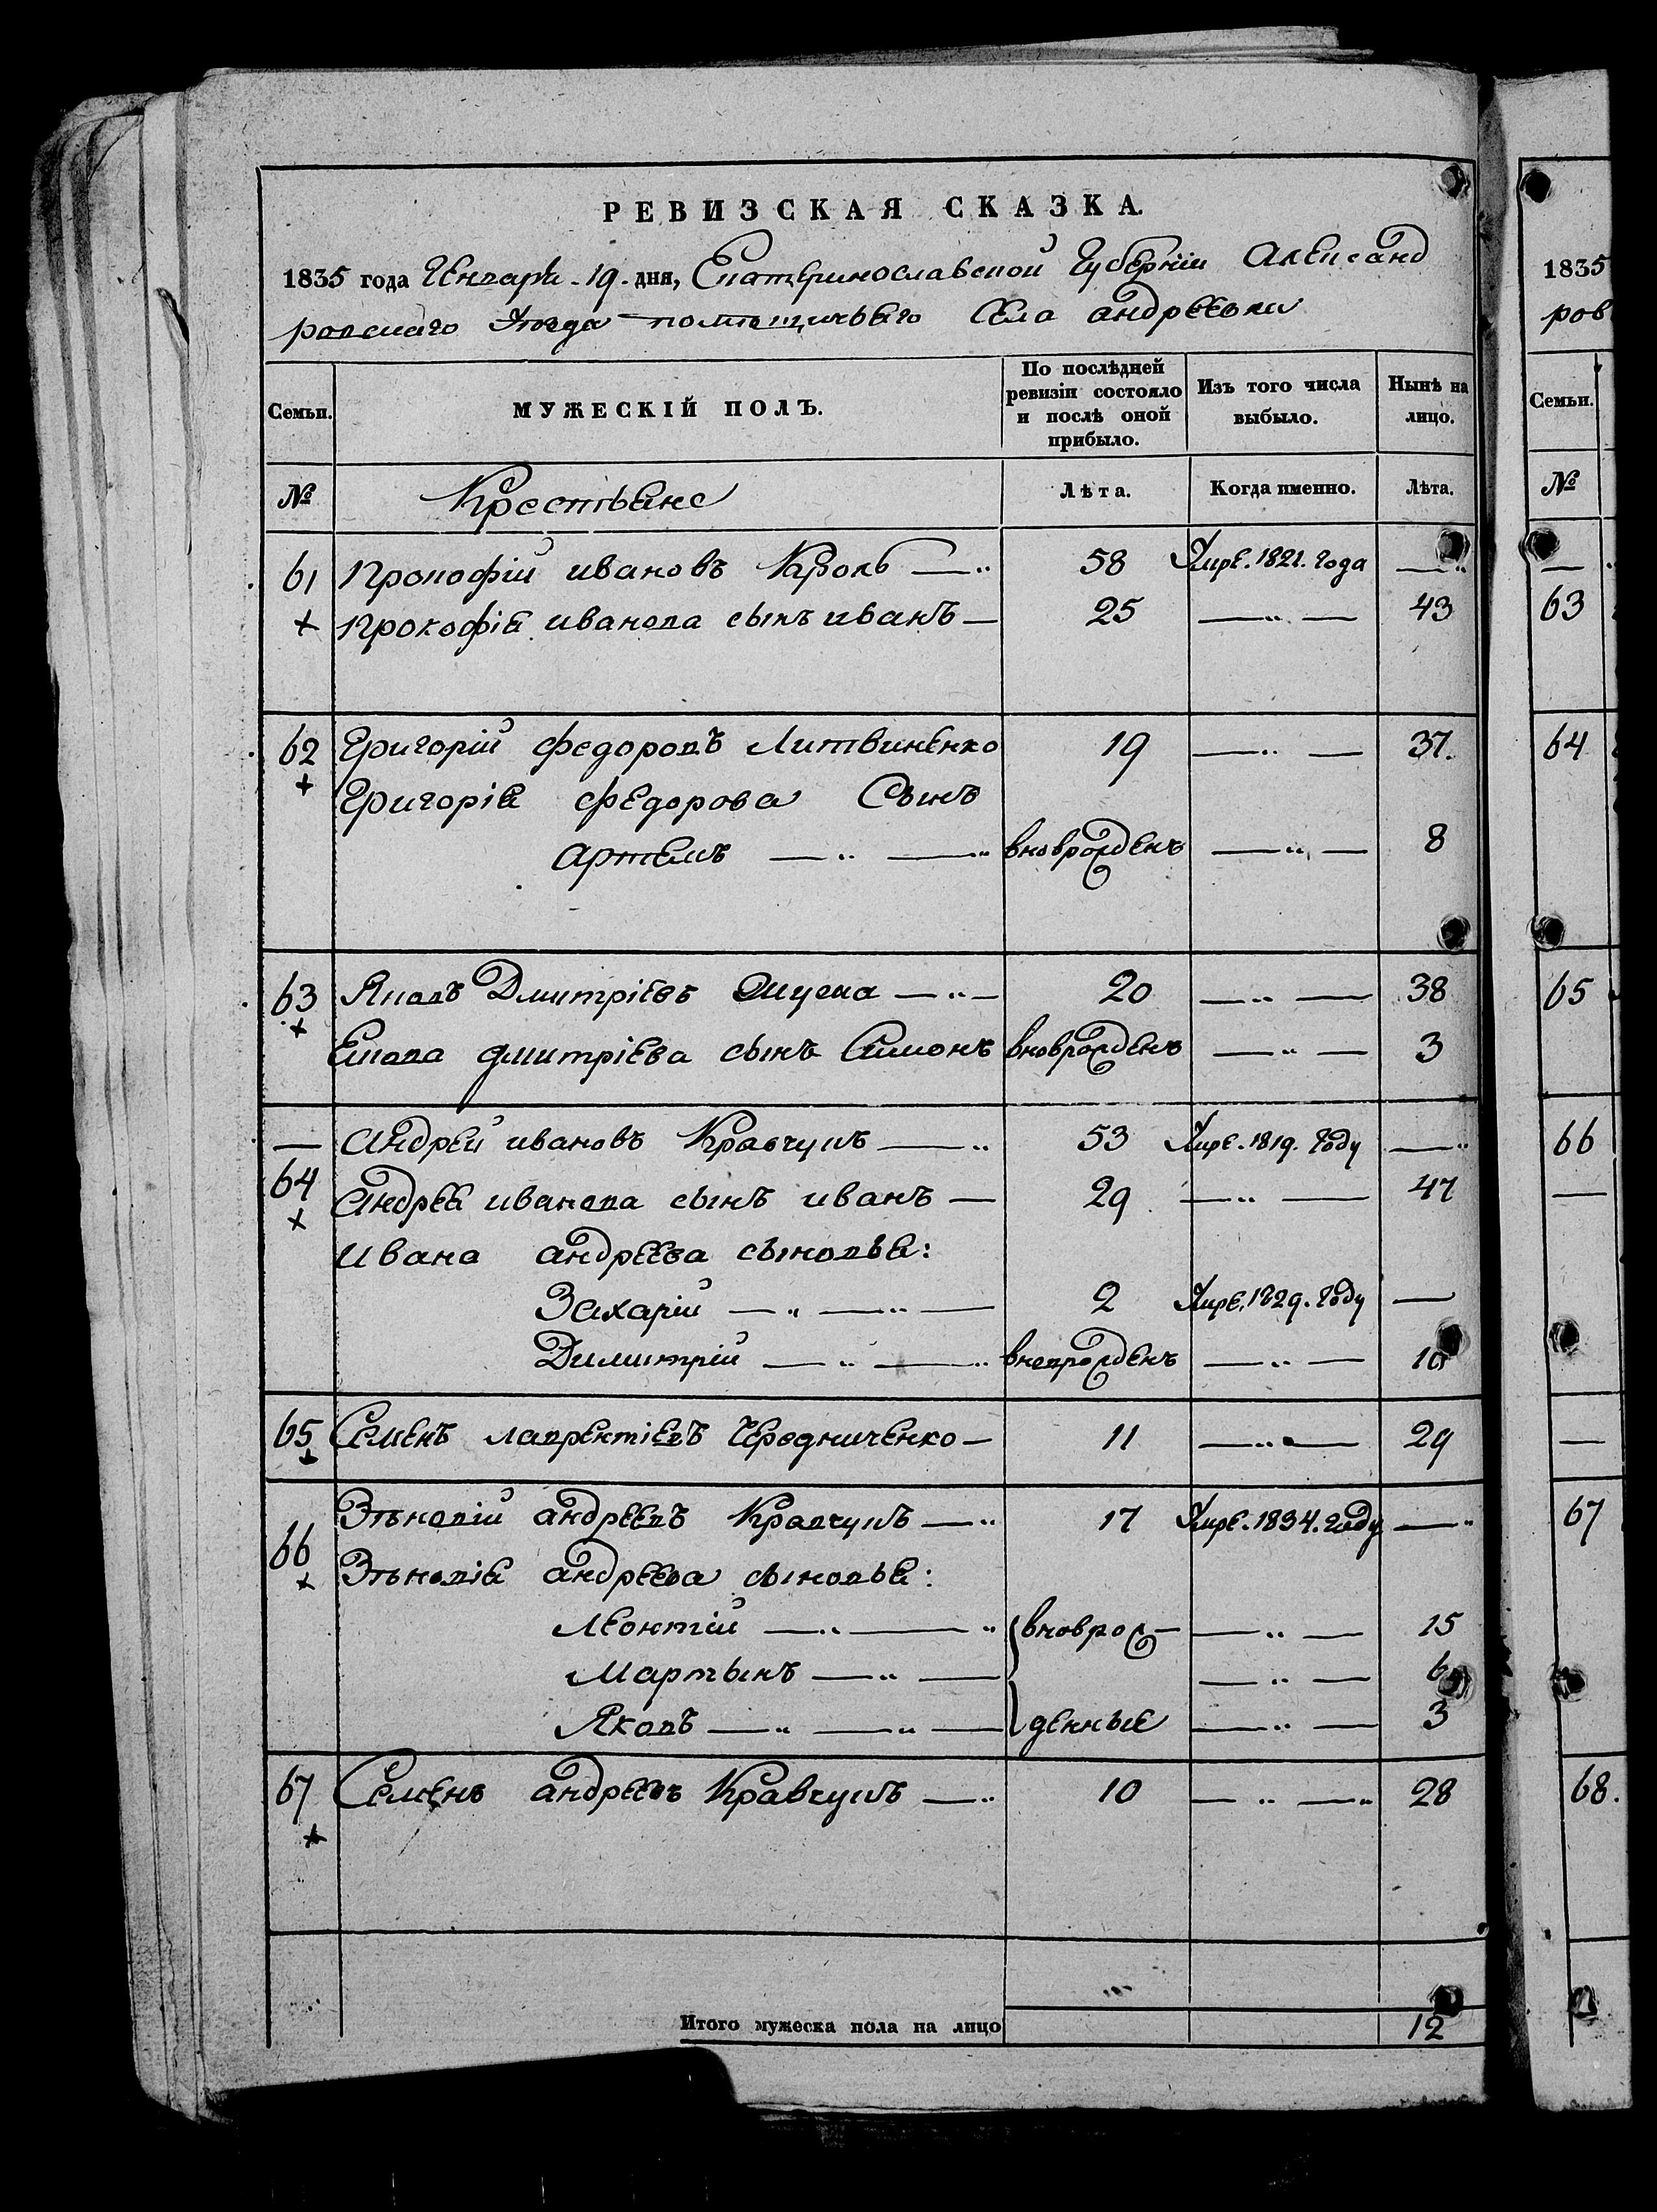 РЕВИЗСКАЯ СКАЗКА.
1835 года Генваря 19. дня, Екатеринославской Губернїи Александ
ровскаго Уѣзда помѣщичьяго Села андреевки
Семьи. МУЖЕСКІЙ ПОЛЪ. По послѣдней ревизіи состояло и послѣ оной прибыло. Изъ того числа выбыло. Нынѣ на лицо.
№ Крестьяне Лѣта. Когда именно. Лѣта.
61 Прокофій ивановъ Кроль 58 Умре. 1821. года
Прокофія иванова сынъ иванъ 25 43
62 Григорій федоровъ Литвиненко 19 37.
Григорія федорова Сынъ
артемъ вноврожденъ 8
63 Яковъ Дмитріевъ 20 38
Якова дмитріева сынъ Симонъ вноврожденъ 3
Андрей ивановъ Кравчунъ 53 Умре. 1819. году
64 Андрея иванова сынъ иванъ 29 47
ивана андреева сыновья:
Захарій 2 Умре. 1829. году
Димитрій вноврожденъ 10
65 Семенъ лаврентіевъ Чередниченко 11 29
66 Зѣновій андреевъ Кравчунъ 17 Умре. 1834. году
Зѣновія андреева сыновья:
Леонтій вноврож- 15
Мартынъ 6
Яковъ денные 3
67 Семенъ андреевъ Кравчунъ 10 28
Итого мужеска пола на лицо 12
1835
ров
Семьи.
№
63
64
65
66
67
68.